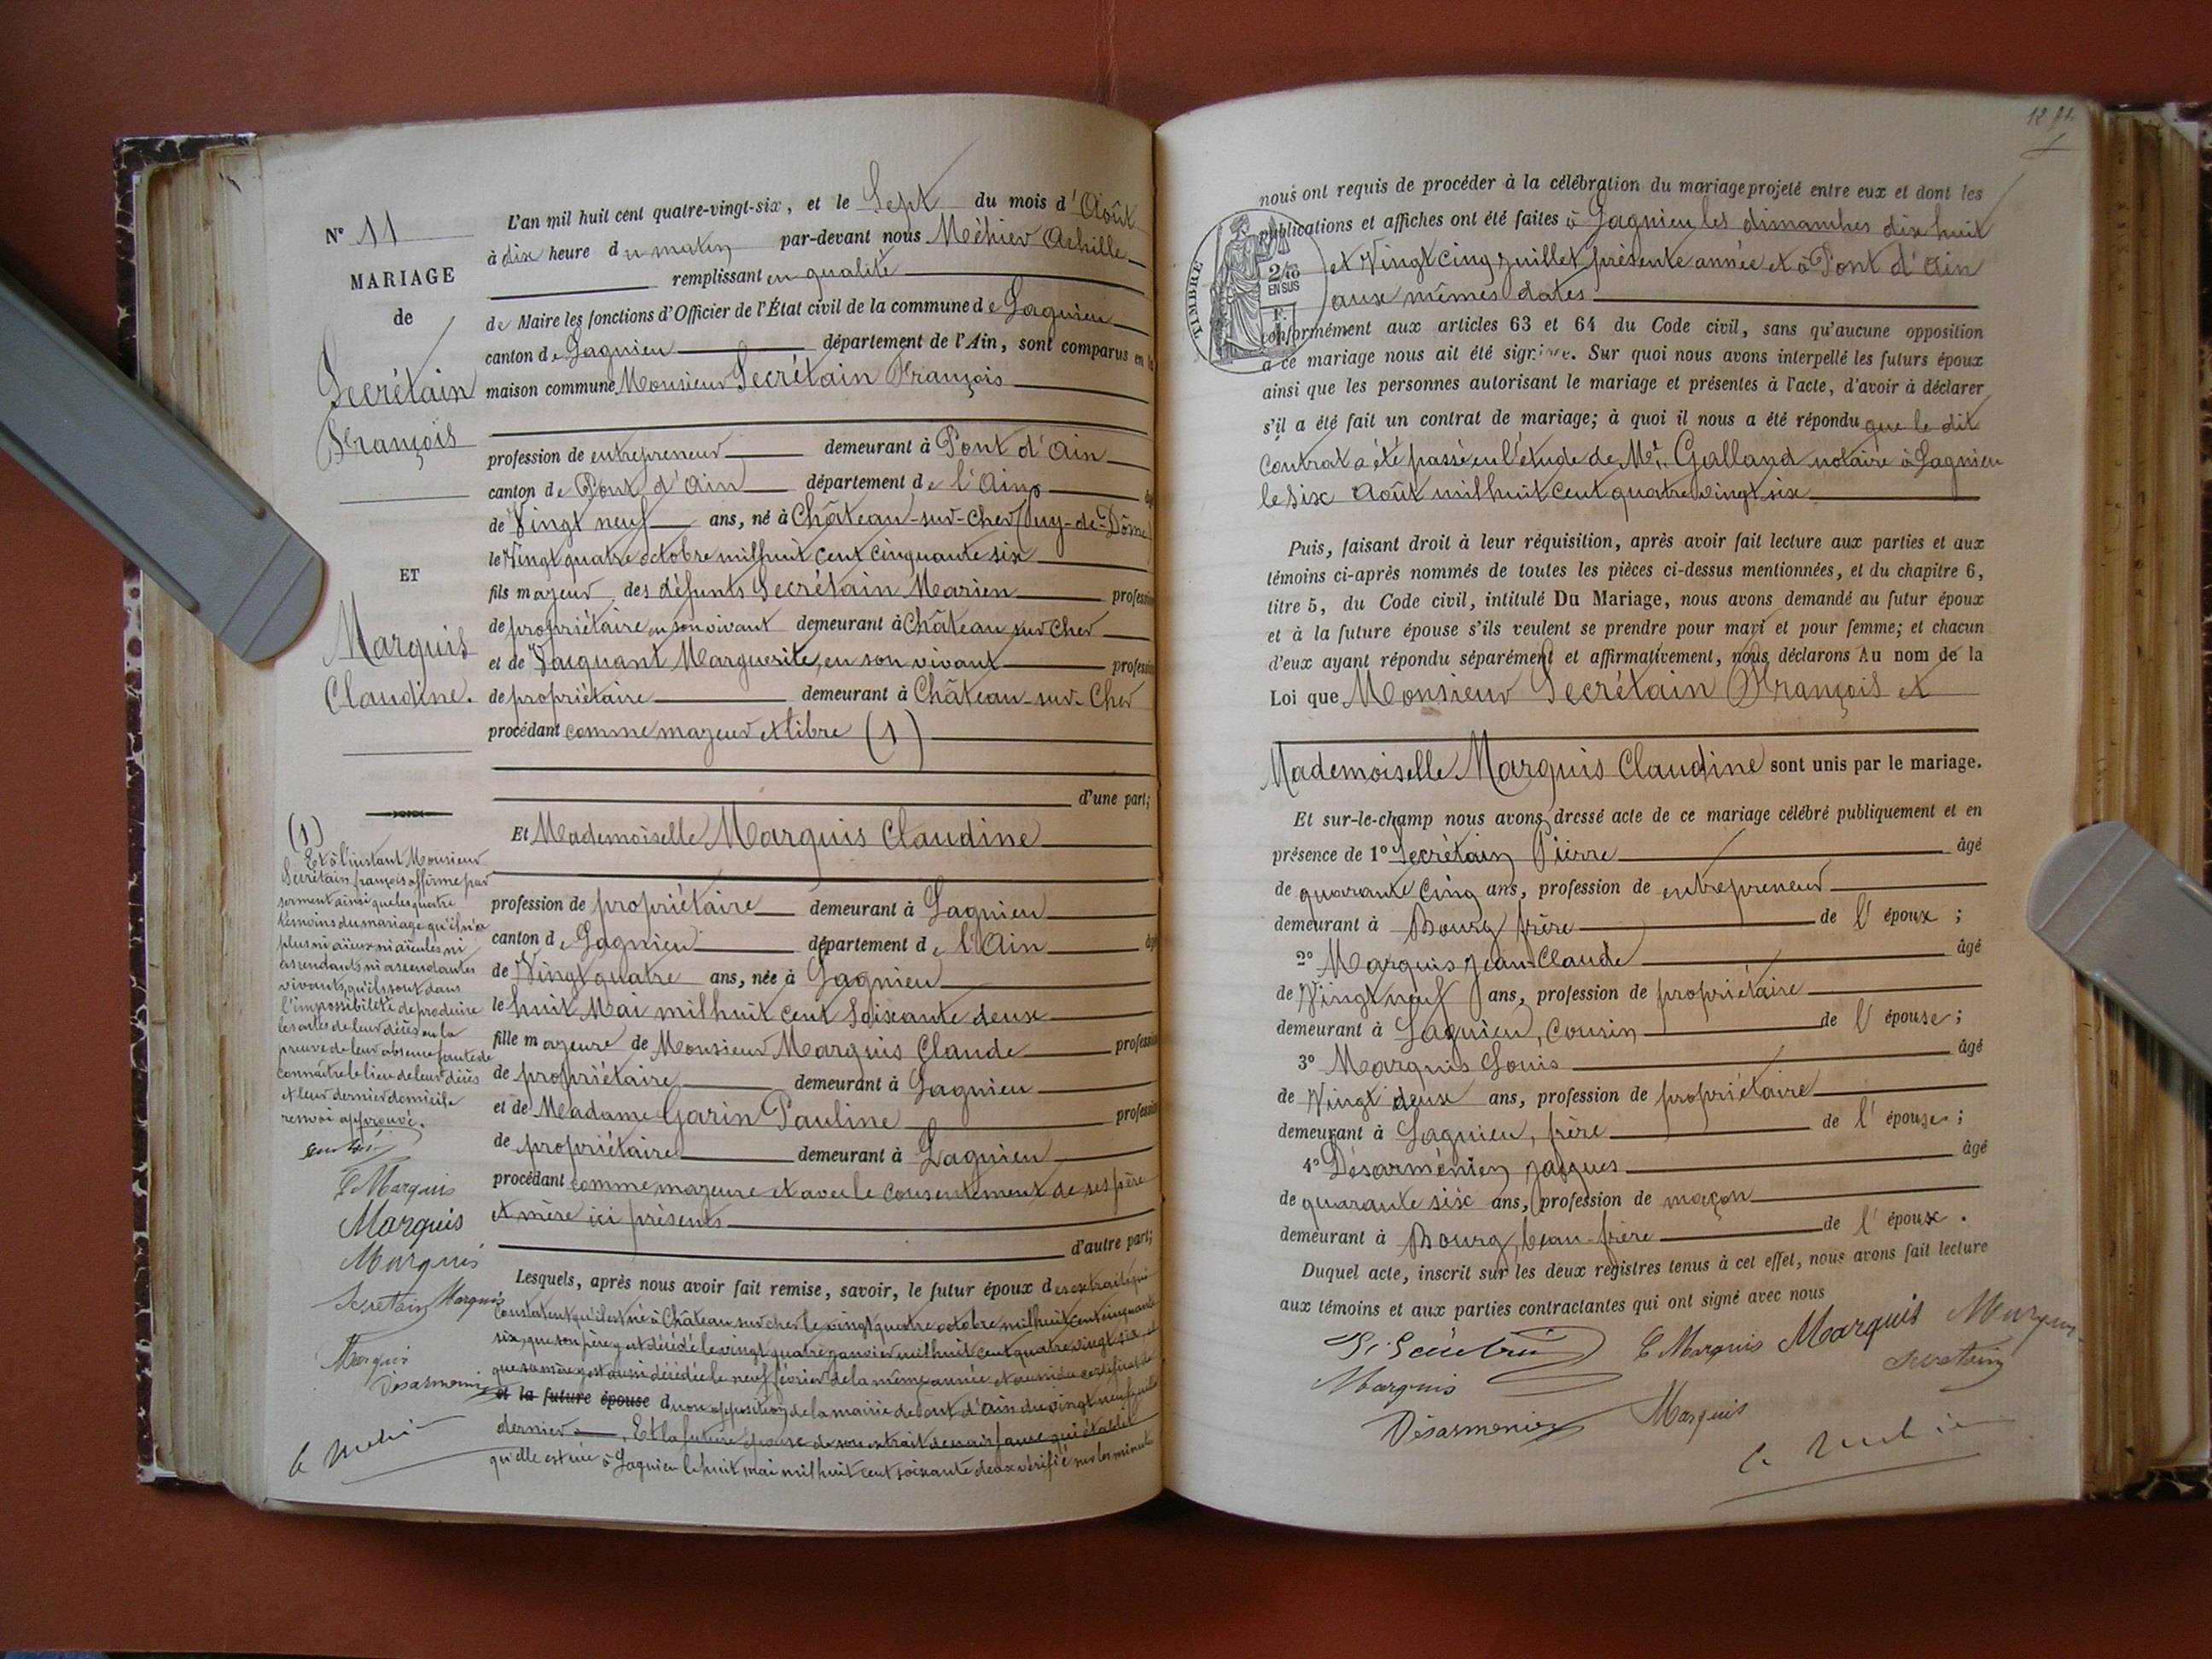 N° 11
MARIAGE
de
Secrétain
François
ET
Marquis
Claudine.
L'an mil huit cent quatre-vingt-six, et le Sept du mois d'Août
à dix heure du matin par-devant nous Méhier Achille
remplissant en qualité
de Maire les fonctions d'Officier de l'État civil de la commune de Lagnieu
canton de Lagnieu département de l'Ain, sont comparus en la
maison commune Monsieur Secrétain François
profession de entrepreneur demeurant à Pont d'Ain
canton de Pont d'Ain département de l'Ain âgé
de Vingt neuf ans, né à Château-sur-Cher (Puy-de-Dôme)
le Vingt quatre octobre mil huit cent cinquante six
fils majeur des défunts Secrétain Marien profession
de propriétaire en son vivant demeurant à Château sur Cher
et de Vacquant Marguerite, en son vivant profession
de propriétaire demeurant à Château-sur-Cher
procédant comme majeur et libre (1)
d'une part;
Et Mademoiselle Marquis Claudine
profession de propriétaire demeurant à Lagnieu
canton de Lagnieu département de l'Ain âgé
de Vingt quatre ans, née à Lagnieu
le huit Mai mil huit cent soixante deux
fille majeure de Monsieur Marquis Claude profession
de propriétaire demeurant à Lagnieu
et de Madame Garin Pauline profession
de propriétaire demeurant à Lagnieu
procédant comme majeure et avec le consentement de ses père
et mère ici présents
d'autre part;
Lesquels, après nous avoir fait remise, savoir, le futur époux des extraits qui
constatent qu'il est né à Château sur cher le vingt quatre octobre mil huit cent cinquante
six, que son père y est décédé le vingt quatre janvier mil huit cent quatre vingt six, et
que sa mère y est aussi décédée le neuf février de la même année et aussi du certificat de
et la future épouse d non opposition de la mairie de Pont d'Ain du vingt neuf juillet
dernier. Et la future épouse de son extrait de naissance qui établit
qu'elle est née à Lagnieu le huit mai mil huit cent soixante deux vérifié sur les minutes
(1)
Et à l'instant Monsieur
Secrétain françois affirme par
serment ainsi que les quatre
témoins du mariage qu'il n'a
plus ni aïeux ni aïeules ni
ascendants ni ascendantes
vivants, qu'ils sont dans
l'impossibilité de produire
les actes de leur décès ou la
preuve de leur absence faute de
connaître le lieu de leur décès
et leur dernier domicile
renvoi approuvé.
C Marquis
Marquis
Marquis
Secretain Marquis
Marquis
Désarmenien
nous ont requis de procéder à la célébration du mariage projeté entre eux et dont les
publications et affiches ont été faites à Lagnieu les dimanches dix huit
et Vingt cinq juillet présente année et à Pont d'Ain
aux mêmes dates
TIMBRE
2/10
EN SUS
conformément aux articles 63 et 64 du Code civil, sans qu'aucune opposition
à ce mariage nous ait été signifiée. Sur quoi nous avons interpellé les futurs époux
ainsi que les personnes autorisant le mariage et présentes à l'acte, d'avoir à déclarer
s'il a été fait un contrat de mariage; à quoi il nous a été répondu que le dit
Contrat a été passé en l'étude de Me. Galland notaire à Lagnieu
le Six Août mil huit cent quatre vingt six
Puis, faisant droit à leur réquisition, après avoir fait lecture aux parties et aux
témoins ci-après nommés de toutes les pièces ci-dessus mentionnées, et du chapitre 6,
titre 5, du Code civil, intitulé Du Mariage, nous avons demandé au futur époux
et à la future épouse s'ils veulent se prendre pour mari et pour femme; et chacun
d'eux ayant répondu séparément et affirmativement, nous déclarons Au nom de la
Loi que Monsieur Secrétain François et
Mademoiselle Marquis Claudine sont unis par le mariage.
Et sur-le-champ nous avons dressé acte de ce mariage célébré publiquement et en
présence de 1° Secrétain Pierre âgé
de quarante cinq ans, profession de entrepreneur
demeurant à Bourg frère de l'époux ;
2° Marquis Jean Claude âgé
de Vingt neuf ans, profession de propriétaire
demeurant à Lagnieu, Cousin de l'épouse ;
3° Marquis Louis âgé
de Vingt deux ans, profession de propriétaire
demeurant à Lagnieu, frère de l'épouse ;
4° Désarménien Jacques âgé
de quarante six ans, profession de maçon
demeurant à Bourg, beau-frère de l'époux .
Duquel acte, inscrit sur les deux registres tenus à cet effet, nous avons fait lecture
aux témoins et aux parties contractantes qui ont signé avec nous
C Marquis Marquis Marquis
Marquis Secretain
Désarmenien Marquis